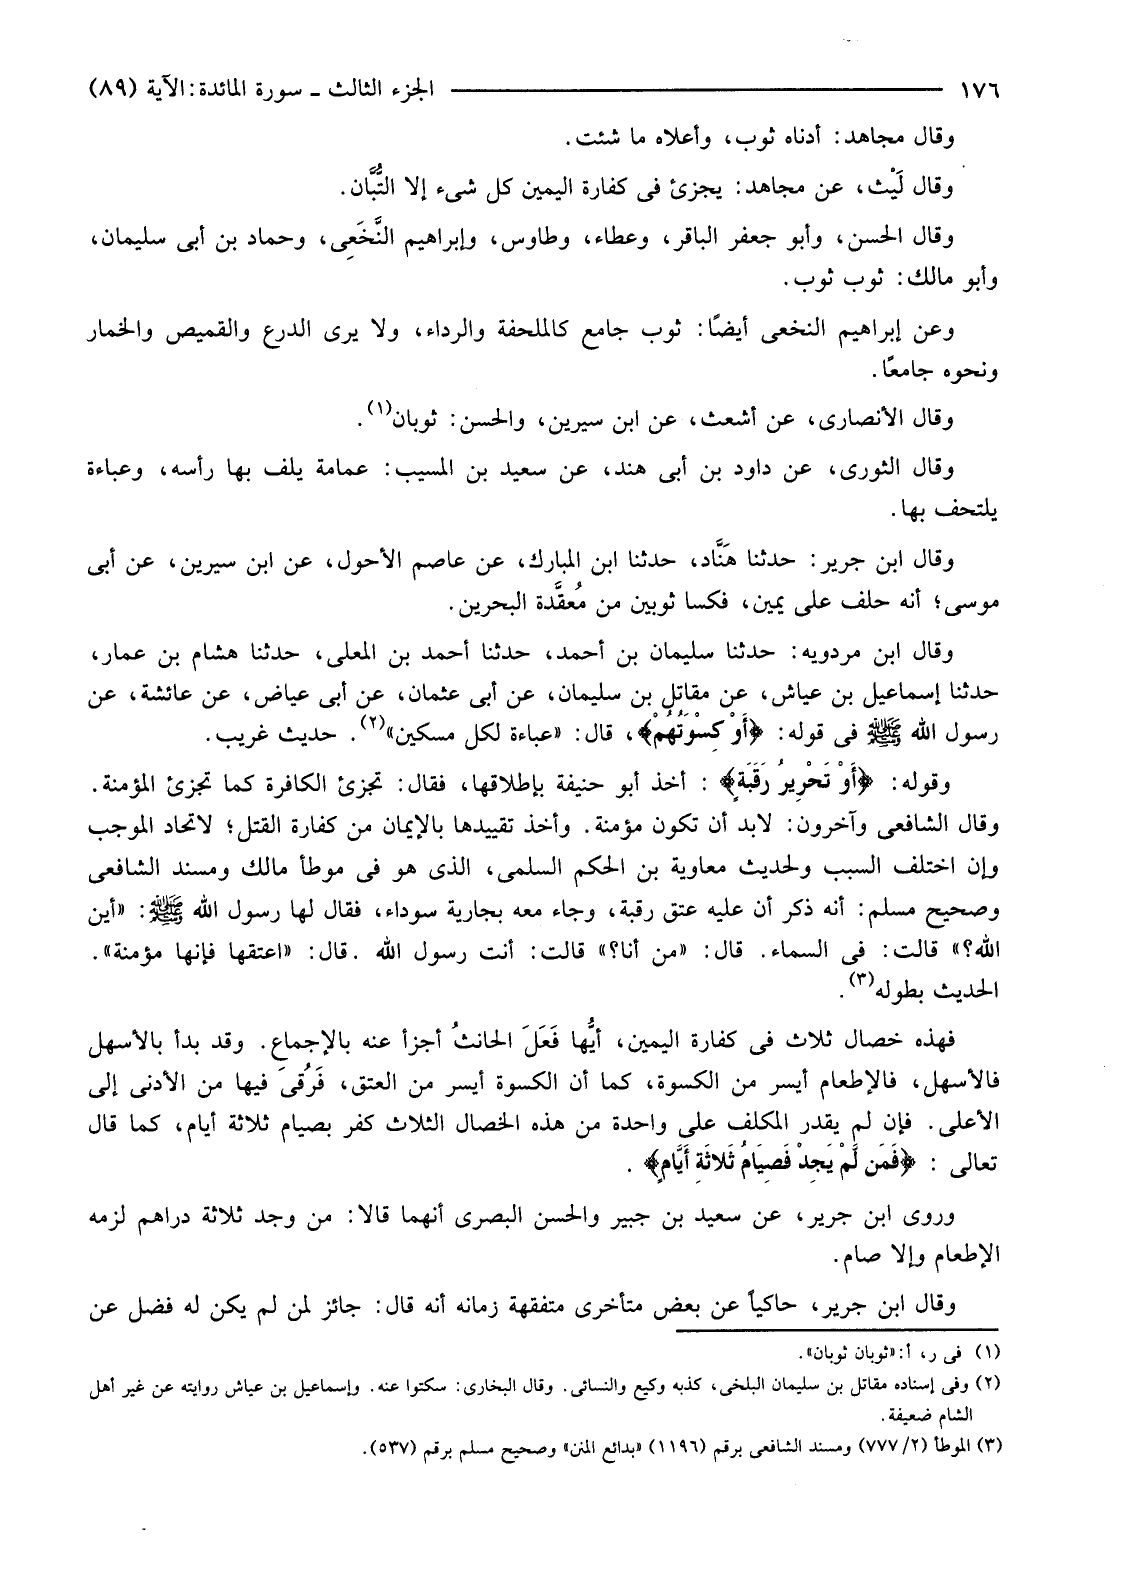 ١٧٦ ــــــــــــــــــــ الجزء الثالث ـ سورة المائدة: الآية (٨٩)
وقال مجاهد: أدناه ثوب، وأعلاه ما شئت.
وقال لَيْث، عن مجاهد: يجزئ فى كفارة اليمين كل شىء إلا التُّبَّان.
وقال الحسن، وأبو جعفر الباقر، وعطاء، وطاوس، وإبراهيم النَّخَعِى، وحماد بن أبى سليمان،
وأبو مالك: ثوب ثوب.
وعن إبراهيم النخعى أيضًا: ثوب جامع كالملحفة والرداء، ولا يرى الدرع والقميص والخمار
ونحوه جامعًا.
وقال الأنصارى، عن أشعث، عن ابن سيرين، والحسن: ثوبان(١).
وقال الثورى، عن داود بن أبى هند، عن سعيد بن المسيب: عمامة يلف بها رأسه، وعباءة
يلتحف بها.
وقال ابن جرير: حدثنا هَنَّاد، حدثنا ابن المبارك، عن عاصم الأحول، عن ابن سيرين، عن أبى
موسى؛ أنه حلف على يمين، فكسا ثوبين من مُعقَّدة البحرين.
وقال ابن مردويه: حدثنا سليمان بن أحمد، حدثنا أحمد بن المعلى، حدثنا هشام بن عمار،
حدثنا إسماعيل بن عياش، عن مقاتل بن سليمان، عن أبى عثمان، عن أبى عياض، عن عائشة، عن
رسول الله ﷺ فى قوله: ﴿أَوْ كِسْوَتُهُمْ﴾، قال: «عباءة لكل مسكين»(٢). حديث غريب.
وقوله: ﴿أَوْ تَحْرِيرُ رَقَبَةٍ﴾ : أخذ أبو حنيفة بإطلاقها، فقال: تجزئ الكافرة كما تجزئ المؤمنة.
وقال الشافعى وآخرون: لابد أن تكون مؤمنة. وأخذ تقييدها بالإيمان من كفارة القتل؛ لاتحاد الموجب
وإن اختلف السبب ولحديث معاوية بن الحكم السلمى، الذى هو فى موطأ مالك ومسند الشافعى
وصحيح مسلم: أنه ذكر أن عليه عتق رقبة، وجاء معه بجارية سوداء، فقال لها رسول الله ﷺ: «أين
الله؟» قالت: فى السماء. قال: «من أنا؟» قالت: أنت رسول الله .قال: «اعتقها فإنها مؤمنة».
الحديث بطوله(٣).
فهذه خصال ثلاث فى كفارة اليمين، أيُّها فَعَلَ الحانثُ أجزأ عنه بالإجماع. وقد بدأ بالأسهل
فالأسهل، فالإطعام أيسر من الكسوة، كما أن الكسوة أيسر من العتق، فَرُقىَ فيها من الأدنى إلى
الأعلى. فإن لم يقدر المكلف على واحدة من هذه الخصال الثلاث كفر بصيام ثلاثة أيام، كما قال
تعالى : ﴿فَمَن لَّمْ يَجِدْ فَصِيَامُ ثَلاثَةِ أَيَّامٍ﴾ .
وروى ابن جرير، عن سعيد بن جبير والحسن البصرى أنهما قالا: من وجد ثلاثة دراهم لزمه
الإطعام وإلا صام.
وقال ابن جرير، حاكياً عن بعض متأخرى متفقهة زمانه أنه قال: جائز لمن لم يكن له فضل عن
(١) فى ر، أ: «ثوبان ثوبان».
(٢) وفى إسناده مقاتل بن سليمان البلخى، كذبه وكيع والنسائى. وقال البخارى: سكتوا عنه. وإسماعيل بن عياش روايته عن غير أهل
الشام ضعيفة.
(٣) الموطأ (٢/ ٧٧٧) ومسند الشافعى برقم (١١٩٦) «بدائع المنن» وصحيح مسلم برقم (٥٣٧).